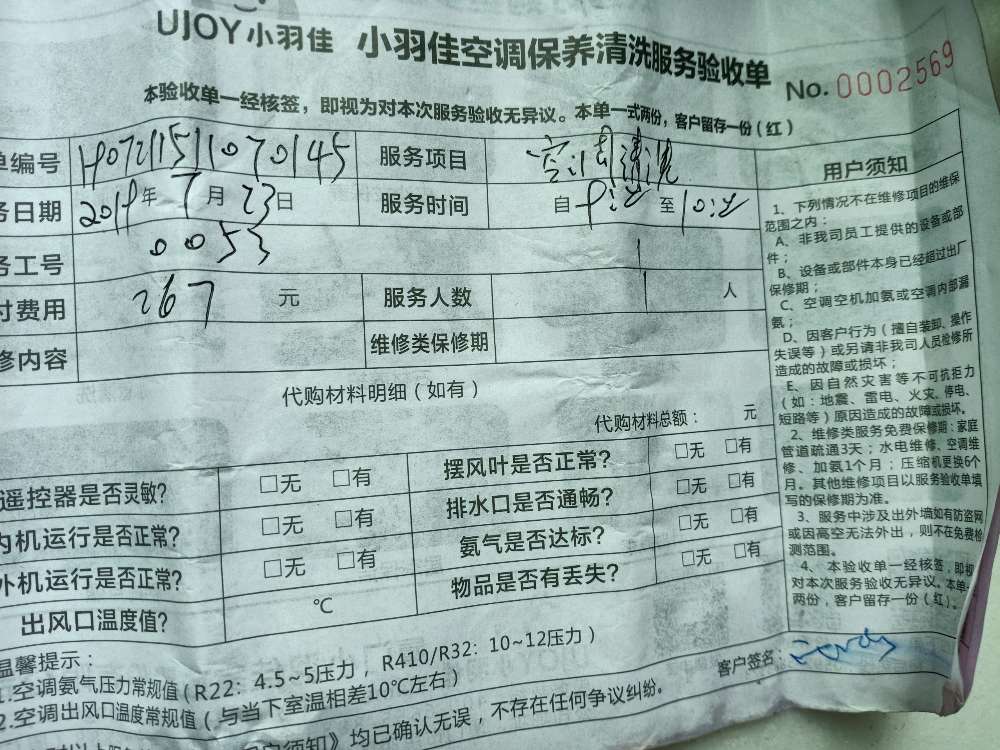 UJOY小羽佳 小羽佳空调保养清洗服务验收单 No. 0002569
本验收单一经核签，即视为对本次服务验收无异议。本单一式两份，客户留存一份（红）
单编号 服务项目 空调清洗
务日期 2019年7月23日 服务时间 自 至
务工号 0053
付费用 267 元 服务人数 1 人
修内容 维修类保修期
代购材料明细（如有）
代购材料总额： 元
遥控器是否灵敏？ □无 □有 摆风叶是否正常？ □无 □有
内机运行是否正常？ □无 □有 排水口是否通畅？ □无 □有
外机运行是否正常？ □无 □有 氨气是否达标？ □无 □有
出风口温度值？ ℃ 物品是否有丢失？ □无 □有
温馨提示：
1.空调氨气压力常规值（R22：4.5~5压力，R410/R32：10~12压力）
2.空调出风口温度常规值（与当下室温相差10℃左右）
用户须知》均已确认无误，不存在任何争议纠纷。
用户须知
1、下列情况不在维修项目的维保
范围之内：
A、非我司员工提供的设备或部
件；
B、设备或部件本身已经超过出厂
保修期；
C、空调空机加氨或空调内部漏
氨；
D、因客户行为（擅自装卸、操作
失误等）或另请非我司人员检修所
造成的故障或损坏；
E、因自然灾害等不可抗拒力
（如：地震、雷电、火灾、停电、
短路等）原因造成的故障或损坏。
2、维修类服务免费保修期：家庭
管道疏通3天；水电维修、空调维
修、加氨1个月；压缩机更换6个
月。其他维修项目以服务验收单填
写的保修期为准。
3、服务中涉及出外墙如有防盗网
或因高空无法外出，则不在免费检
测范围。
4、本验收单一经核签，即视
对本次服务验收无异议。本单一
两份，客户留存一份（红）。
客户签名：